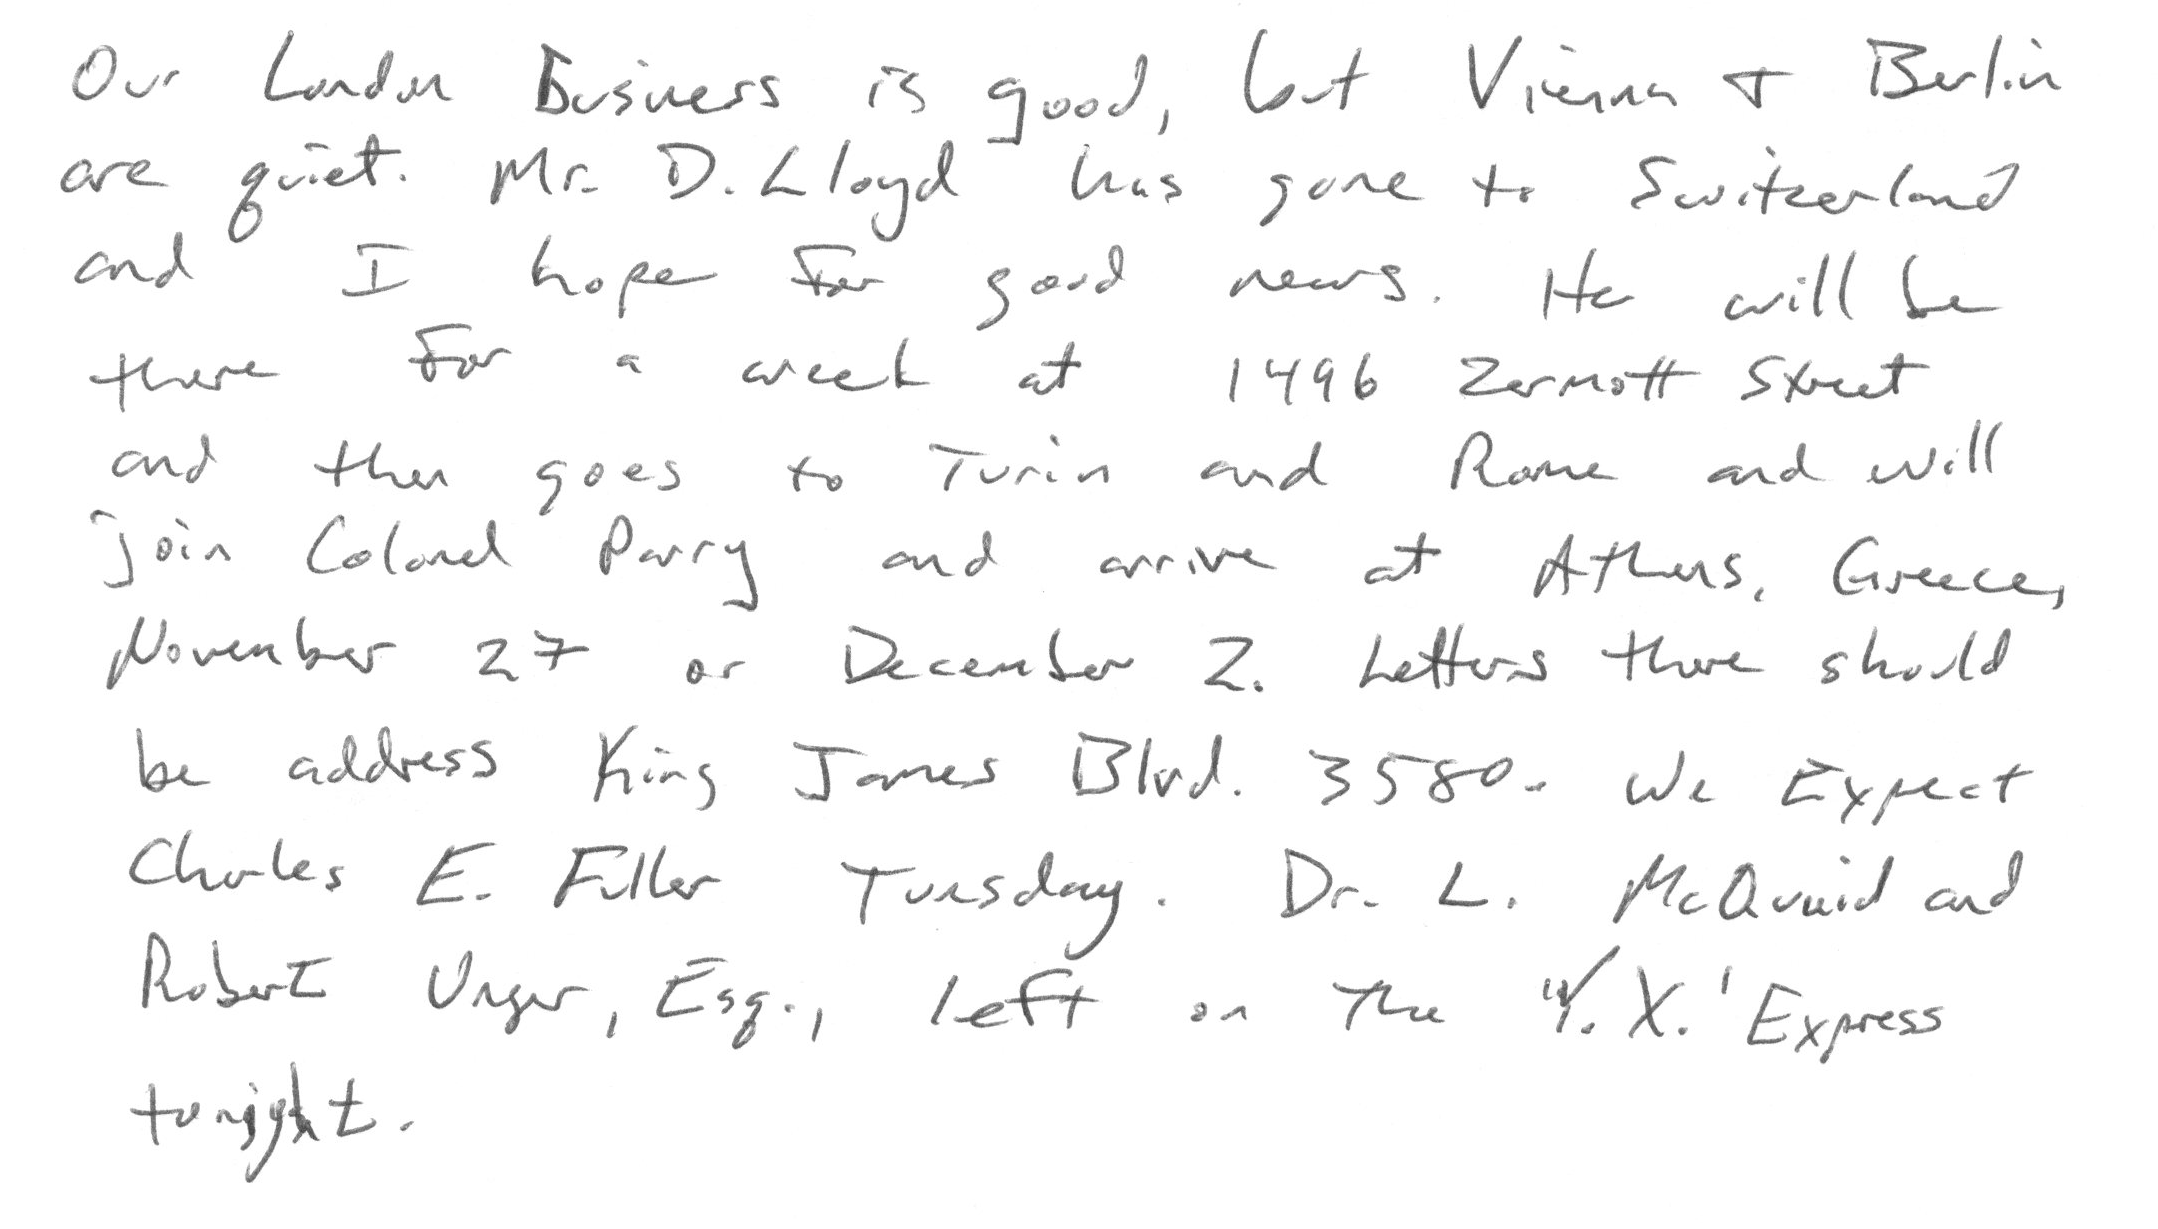 Our London Business is good, but Vienna + Berlin
are quiet. Mr. D. Lloyd has gone to Switzerland
and I hope for good news. He will be
there for a week at 1496 Zermott Street
and then goes to Turin and Rome and will
join Colonel Parry and arrive at Athens, Greece,
November 27 or December 2. Letters there should
be address King James Blvd. 3580. We Expect
Charles E. Fuller Tuesday. Dr. L. McQuaid and
Robert Unger, Esq., left on the "Y. X.' Express
tonight.